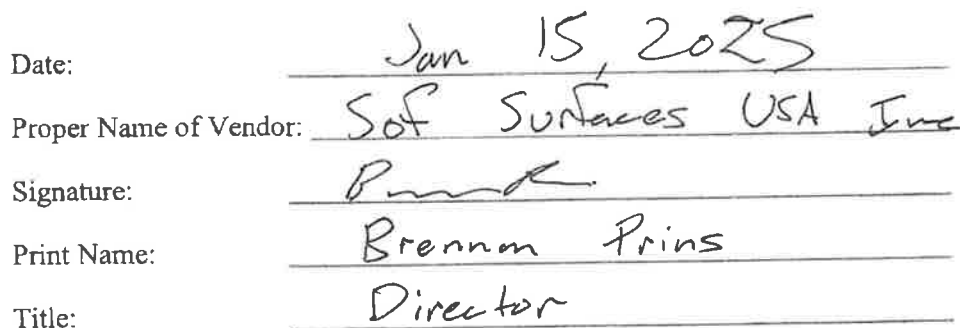 Date: Jan 15, 2025
Proper Name of Vendor: Sof Surfaces USA Inc
Signature:
Print Name: Brennan Prins
Title: Director